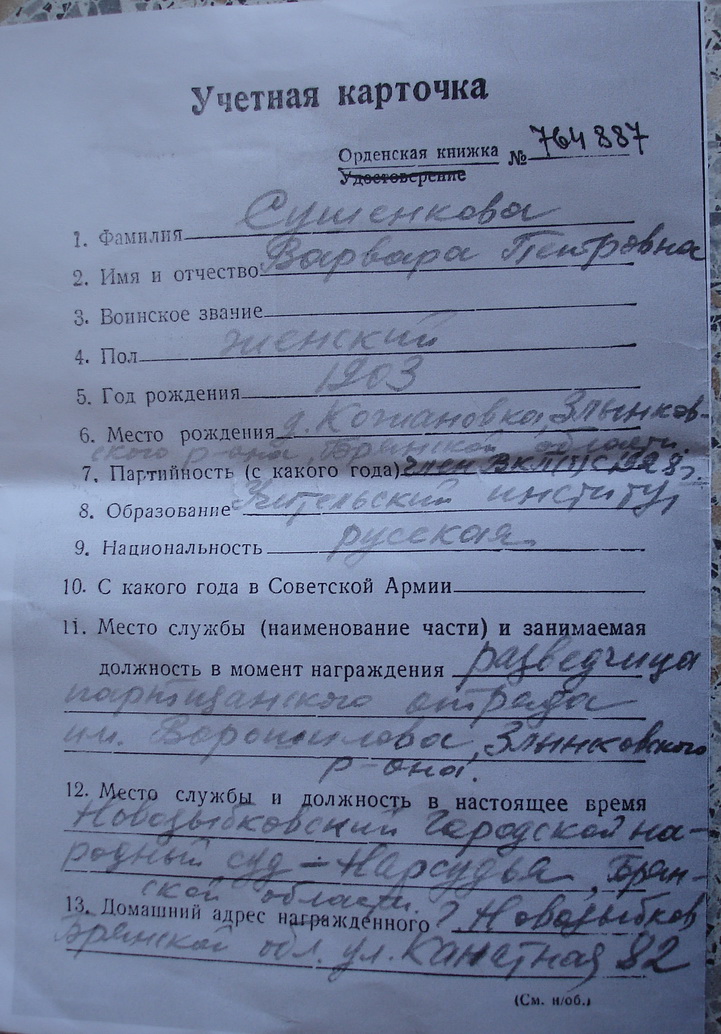 Учетная карточка
Орденская книжка № 764887
Удостоверение
1. Фамилия Сушенкова
2. Имя и отчество Варвара Петровна
3. Воинское звание
4. Пол женский
5. Год рождения 1903
6. Место рождения д. Кожановка, Злынков-
ского р-она, Брянской области.
7. Партийность (с какого года) член ВКП(б) с 1928 г.
8. Образование Учительский институт
9. Национальность русская
10. С какого года в Советской Армии
11. Место службы (наименование части) и занимаемая
должность в момент награждения разведчица
партизанского отряда
им. Ворошилова, Злынковского
р-она.
12. Место службы и должность в настоящее время
Новозыбковский городской на-
родный суд – Нарсудья, Брян-
ской области.
13. Домашний адрес награжденного г. Новозыбков
Брянской обл. ул. Канатная 82
(См. н/об.)